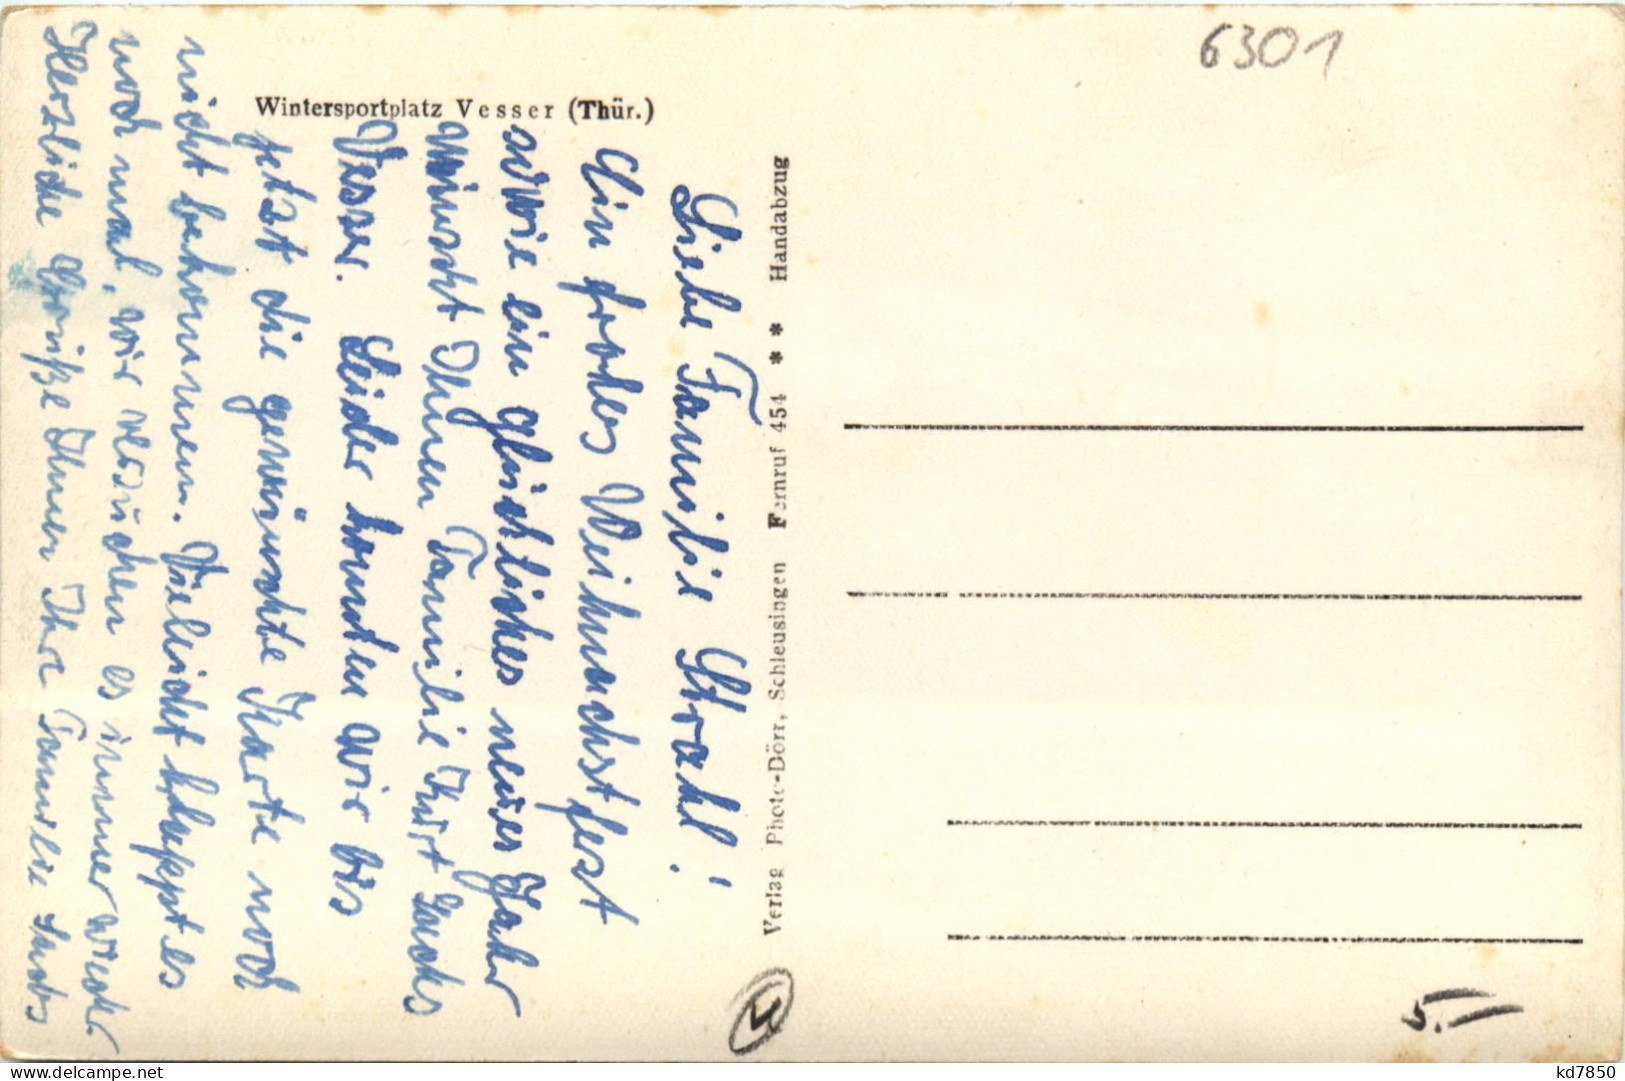 6301
Wintersportplatz Vesser (Thür.)
Liebe Familie Strahl!
Ein frohes Weihnachtsfest
sowie ein glückliches neues Jahr
wünscht Ihnen Familie Kurt
Vesser. Leider konnten wir bis
jetzt die gewünschte Karte noch
nicht bekommen. Vielleicht klappt es
noch mal, wir versuchen es immer wieder.
Herzliche Grüße Ihnen Ihre Familie
Verlag Photo-Dörr, Schleusingen Fernruf 454 ** Handabzug
5.-
kd7850